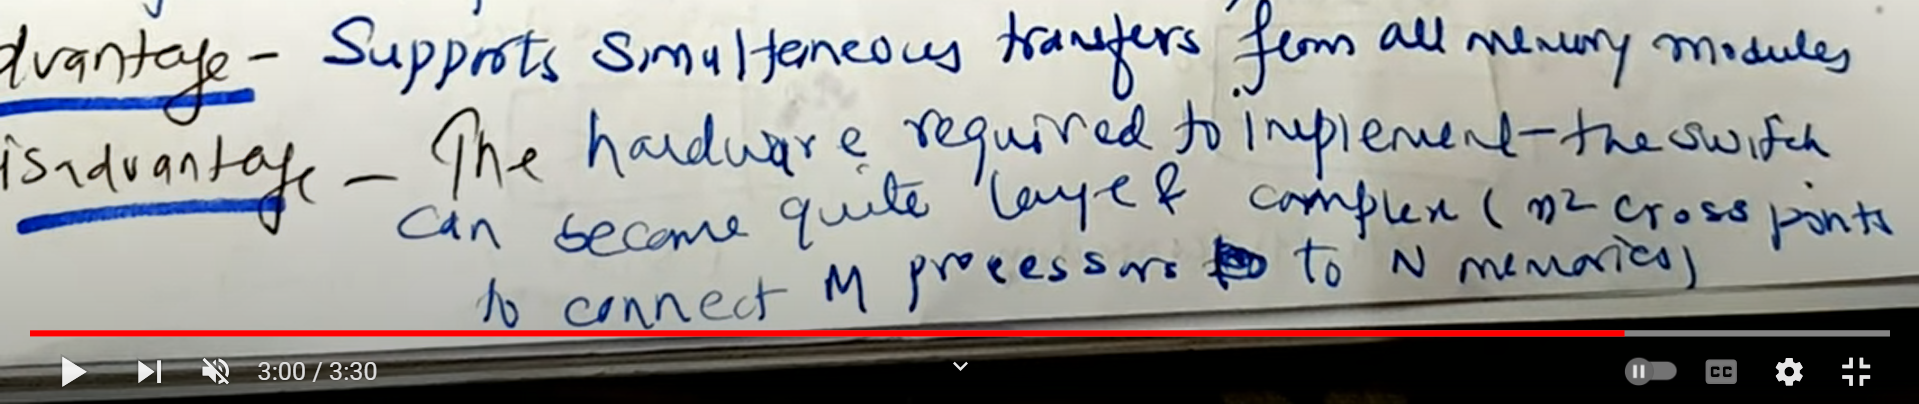 dvantage - Supports Simulteneous transfers from all memory modules
isadvantage - The hardware required to implement the switch
can become quite large & complex ( n² cross points
to connect M processors to N memories)
3:00 / 3:30
CC